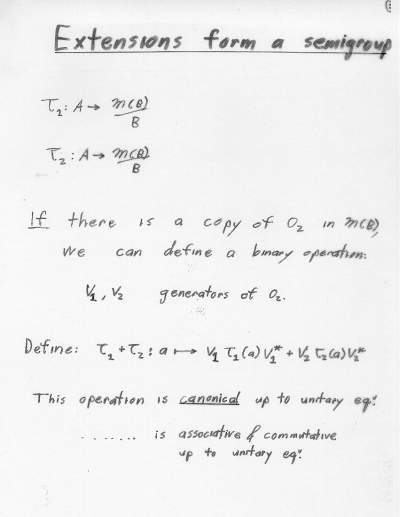 Extensions form a semigroup
τ₁ : A → m(B)/B
τ₂ : A → m(B)/B
If there is a copy of O₂ in m(B),
we can define a binary operation:
V₁, V₂ generators of O₂.
Define: τ₁ + τ₂ : a ↦ V₁ τ₁(a) V₁* + V₂ τ₂(a) V₂*
This operation is canonical up to unitary eq:
....... is associative & commutative
up to unitary eq: